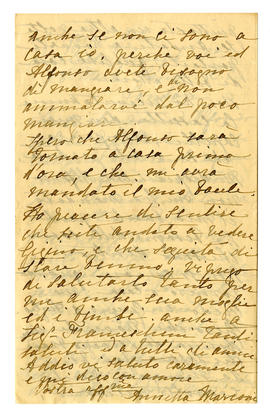 anche se non ci sono a
casa io, perche voi ed
Alfonso avete bisogno
di mangiare, e non
ammalarvi dal poco
mangiare.
Spero che Alfonso sara
tornato a casa prima
d'ora, e che mi avra
mandato il mio baule.
Ho piacere di sentire
che siete andato a vedere
e che seguita di
stare benino, vi prego
di salutarlo tanto per
me anche sua moglie
ed i bimbi. anche a
Sig. Franceschini tanti
saluti da tutti di amici
Addio vi saluto caramente
e mi dico con amore
Vostra Annetta Marconi